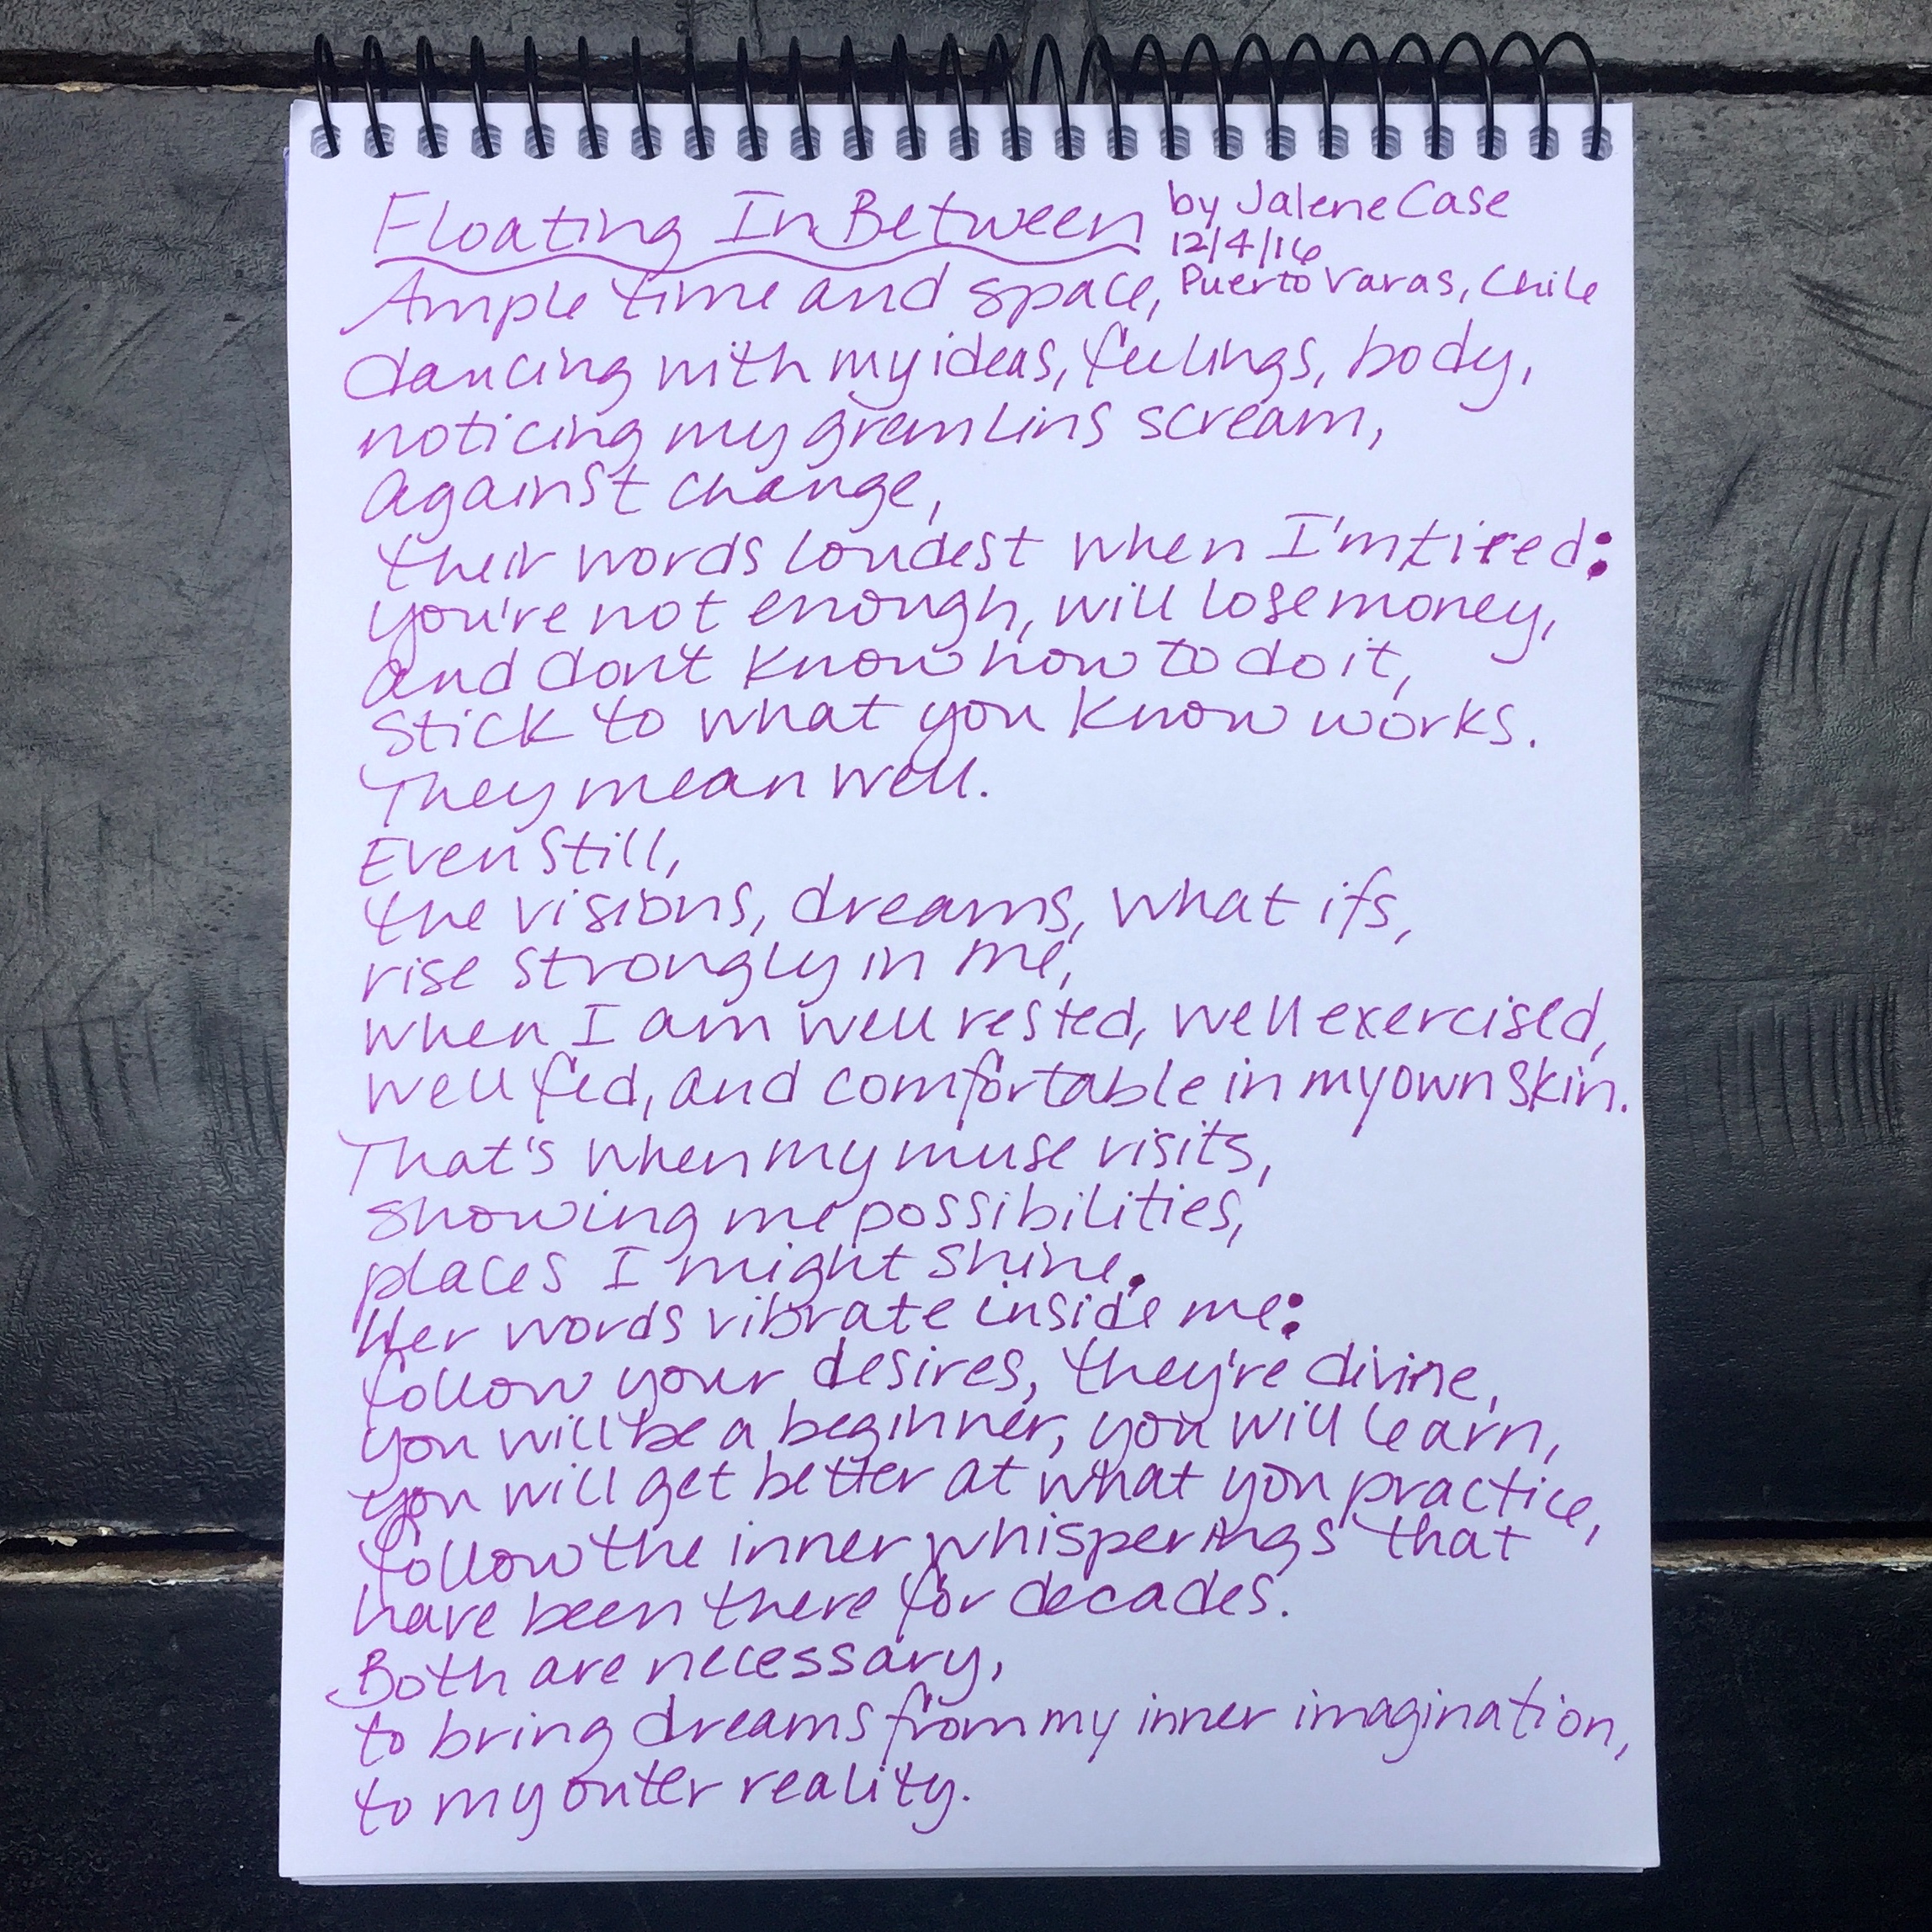 Floating In Between by Jalene Case
12/4/16
Ample time and space, Puerto Varas, Chile
dancing with my ideas, feelings, body,
noticing my gremlins scream,
against change,
their words loudest when I'm tired:
you're not enough, will lose money,
and don't know how to do it,
stick to what you know works.
They mean well.
Even still,
the visions, dreams, what ifs,
rise strongly in me,
when I am well rested, well exercised,
well fed, and comfortable in my own skin.
That's when my muse visits,
showing me possibilities,
places I might shine.
Her words vibrate inside me:
follow your desires, they're divine,
you will be a beginner, you will learn,
you will get better at what you practice,
follow the inner whisperings that
have been there for decades.
Both are necessary,
to bring dreams from my inner imagination,
to my outer reality.